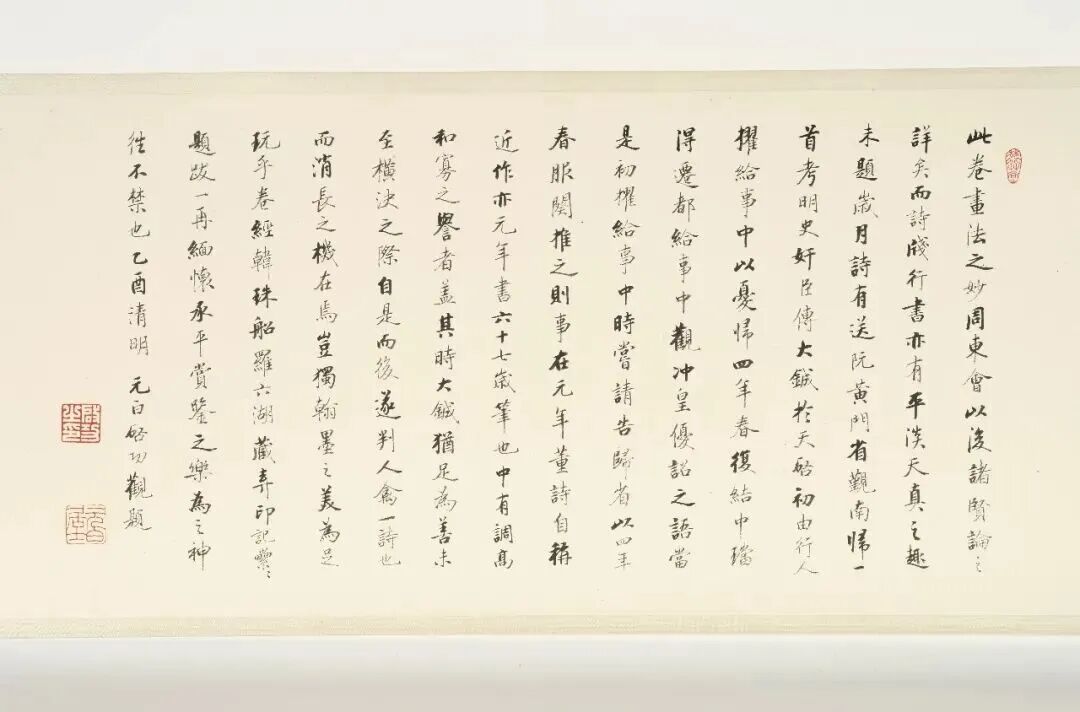 此卷畫法之妙周東會以後諸賢論之
詳矣而詩牋行書亦有平淡天真之趣
未題歲月詩有送阮黃門省覲南歸一
首考明史奸臣傳大鋮於天啓初由行人
擢給事中以憂歸四年春復結中璫
得遷都給事中觀沖皇優詔之語當
是初擢給事中時嘗請告歸省以四年
春服闋推之則事在元年董詩自稱
近作亦元年書六十七歲筆也中有調高
和寡之譽者蓋其時大鋮猶足為善未
至橫決之際自是而後遂判人禽一詩也
而消長之機在焉豈獨翰墨之美為足
玩乎卷經韓珠船羅六湖藏弆印記纍纍
題跋一再緬懷承平賞鑒之樂為之神
往不禁也乙酉清明 元白啓功觀題